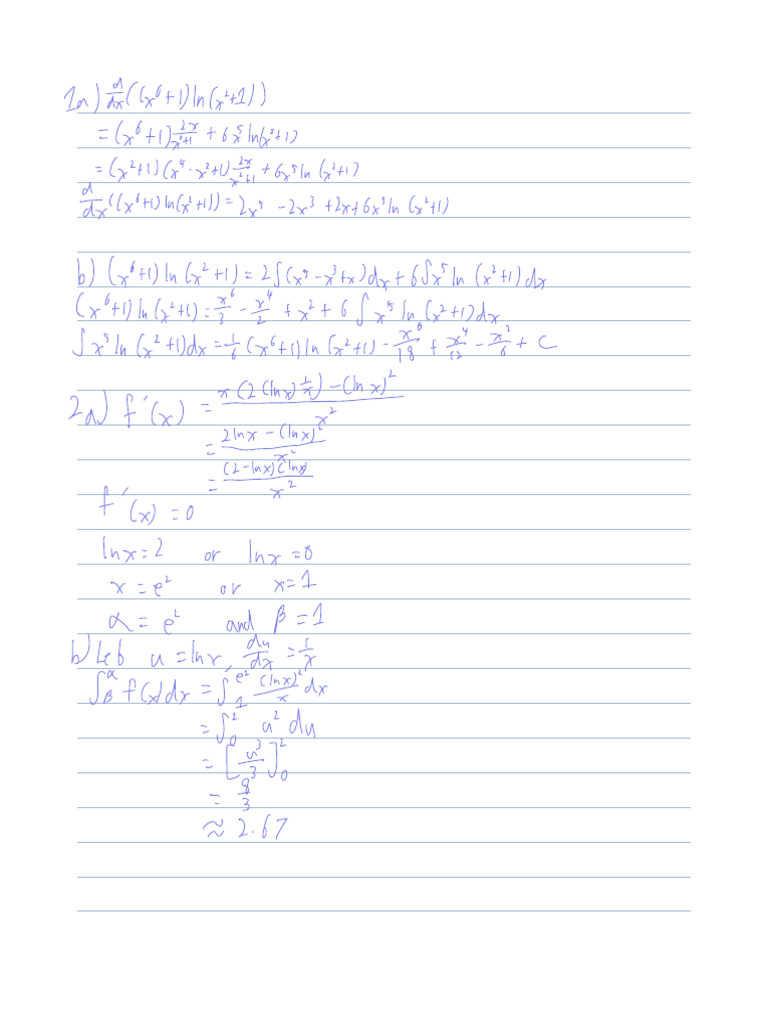 1a) d/dx((x⁶+1)ln(x²+1))
=(x⁶+1) 2x/(x²+1) + 6x⁵ln(x²+1)
=(x²+1)(x⁴-x²+1) 2x/(x²+1) + 6x⁵ln(x²+1)
d/dx((x⁶+1)ln(x²+1))=2x⁵-2x³+2x+6x⁵ln(x²+1)
b) (x⁶+1)ln(x²+1)=2∫(x⁵-x³+x)dx+6∫x⁵ln(x²+1)dx
(x⁶+1)ln(x²+1)=x⁶/3-x⁴/2+x²+6∫x⁵ln(x²+1)dx
∫x⁵ln(x²+1)dx=1/6(x⁶+1)ln(x²+1)-x⁶/18+x⁴/12-x²/6+C
2a) f'(x) = (x(2(lnx)1/x)-(lnx)²)/x²
= (2lnx-(lnx)²)/x²
= ((2-lnx)(lnx))/x²
f'(x)=0
lnx=2 or lnx=0
x=e² or x=1
α=e² and β=1
b) Let u=lnx, du/dx=1/x
∫_β^α f(x)dx=∫_1^(e²) (lnx)²/x dx
=∫_0^2 u² du
=[u³/3]_0^2
=8/3
≈2.67